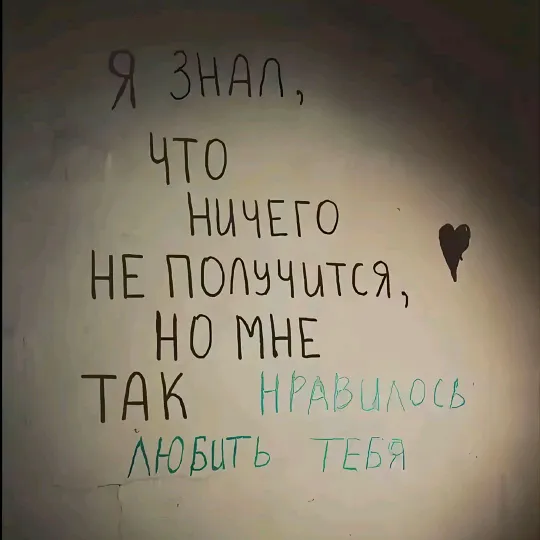 Я ЗНАЛ,
ЧТО
НИЧЕГО
НЕ ПОЛУЧИТСЯ,
НО МНЕ
ТАК НРАВИЛОСЬ
ЛЮБИТЬ ТЕБЯ